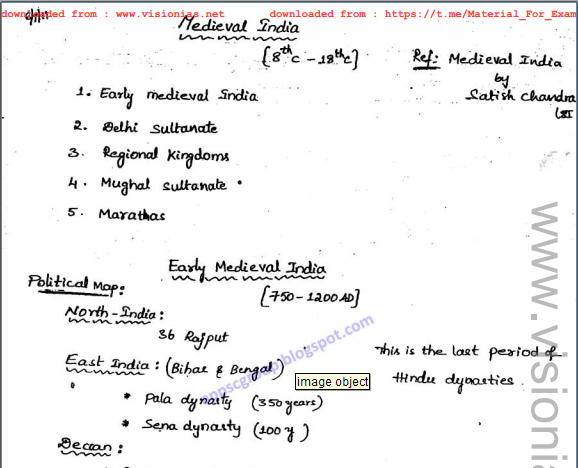 downloaded from : www.visionias.net downloaded from : https://t.me/Material_For_Exam
Medieval India
[8th C - 18th C]
Ref: Medieval India
by
Satish Chandra
1. Early medieval India
2. Delhi sultanate
3. Regional Kingdoms
4. Mughal sultanate
5. Marathas
Early Medieval India
Political Map:
[750-1200 AD]
North-India:
36 Rajput
This is the last period of
Hindu dynasties.
East India: (Bihar & Bengal)
image object
* Pala dynasty (350 years)
* Sena dynasty (100 y)
Deccan:
www.visionia